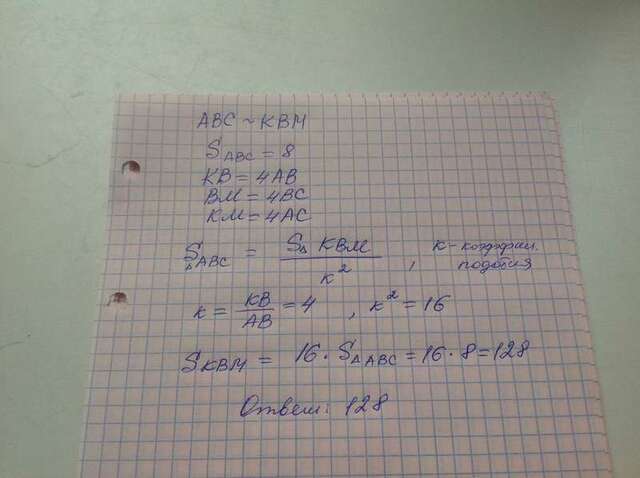 ABC ~ KBM
S ABC = 8
KB = 4AB
BM = 4BC
KM = 4AC
S△ABC = S△ KBM / K², K - коэффици. подобия
K = KB / AB = 4, K² = 16
SKBM = 16 · S△ABC = 16 · 8 = 128
Ответ: 128